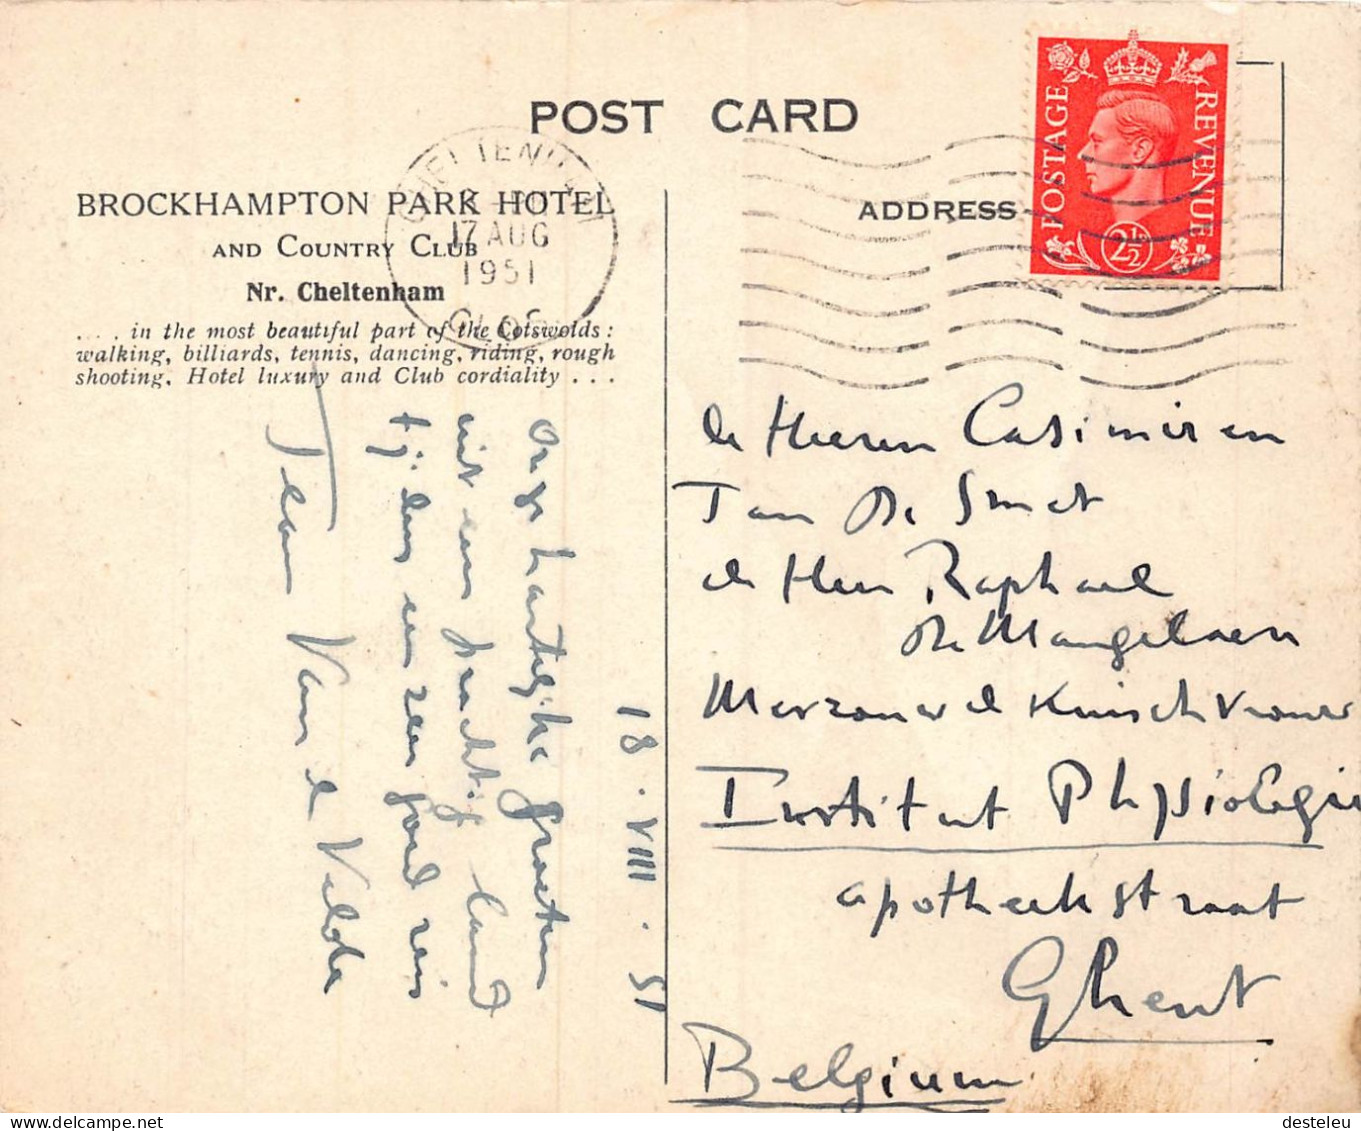 POST CARD
BROCKHAMPTON PARK HOTEL
AND COUNTRY CLUB
Nr. Cheltenham
. . . . in the most beautiful part of the Cotswolds :
walking, billiards, tennis, dancing, riding, rough
shooting. Hotel luxury and Club cordiality . . .
CHELTENHAM
17 AUG
1951
GLOS
ADDRESS
POSTAGE
REVENUE
2½
18.VIII.51
Onze hartelijke groeten
uit een prachtig land
tijdens een zeer goed reis
Jean Van de Velde
de Heeren Casimir en
Jan De Smet
de Heer Raphael
De Mangelaere
de
Institut Physiologie
apotheekstraat
Ghent
Belgium
desteleu